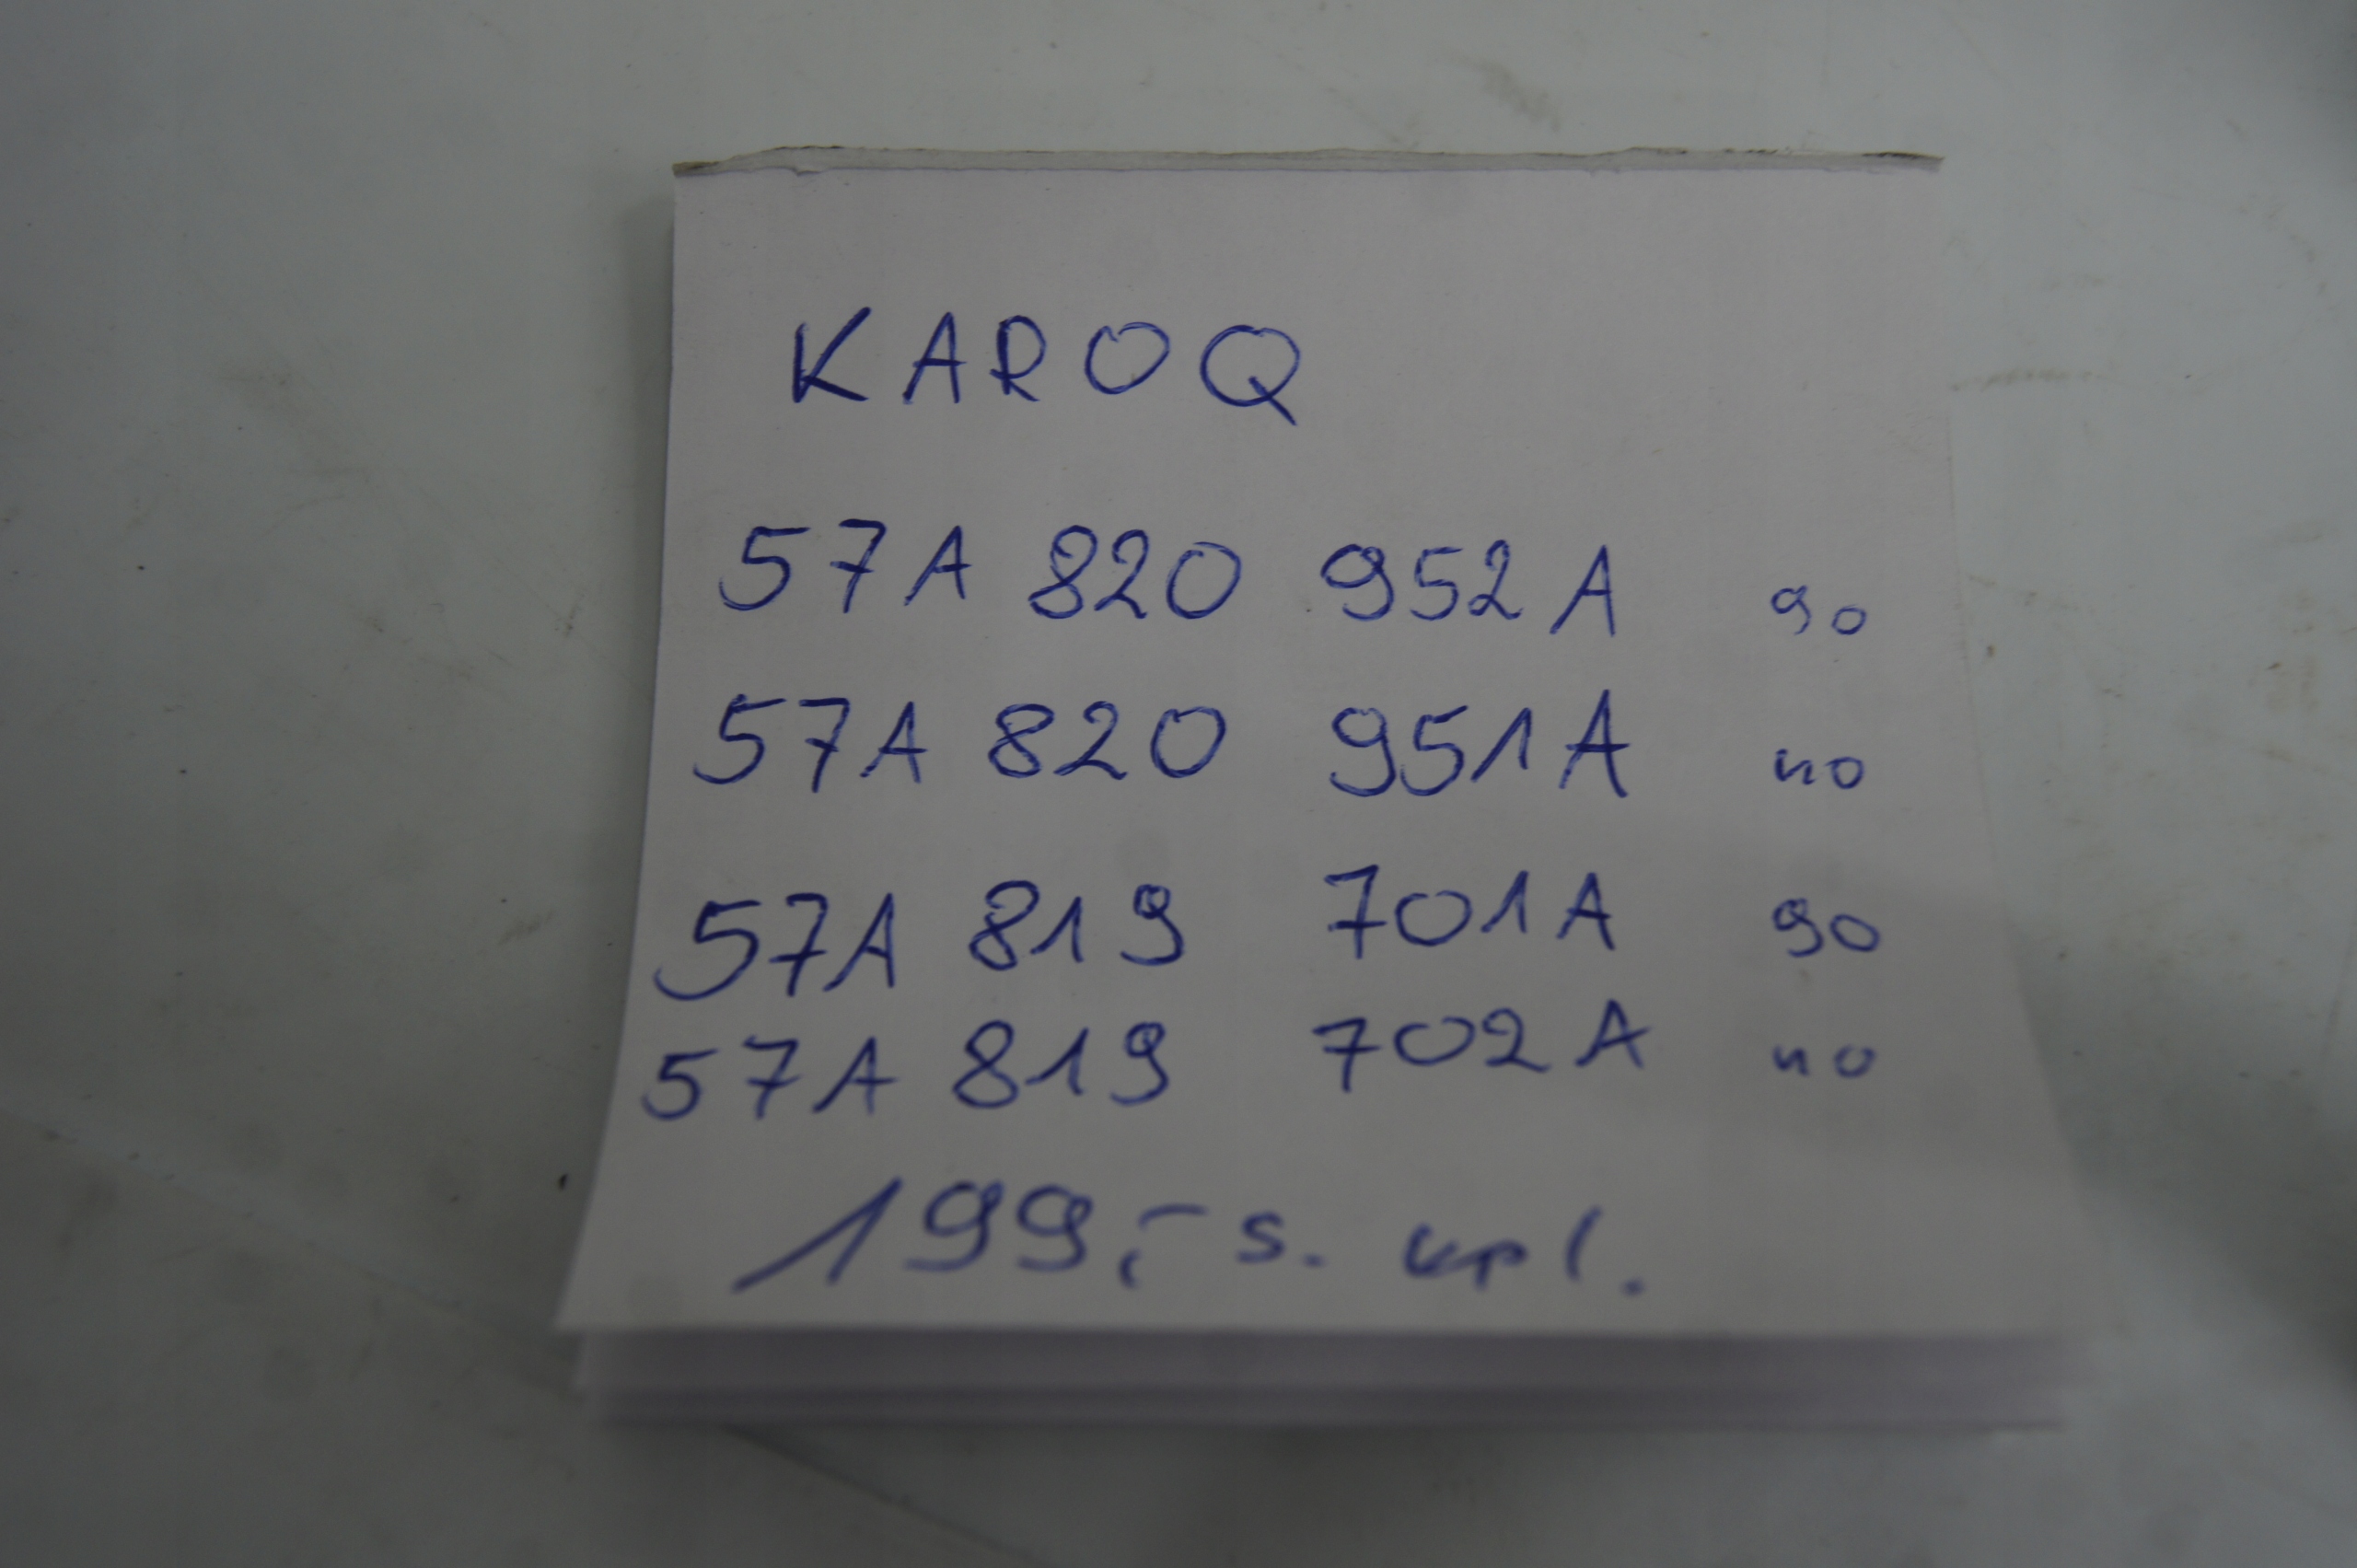 KAROQ
57A 820 952A 90
57A 820 951A 40
57A 819 701A 90
57A 819 702A 40
199,- s. kpl.